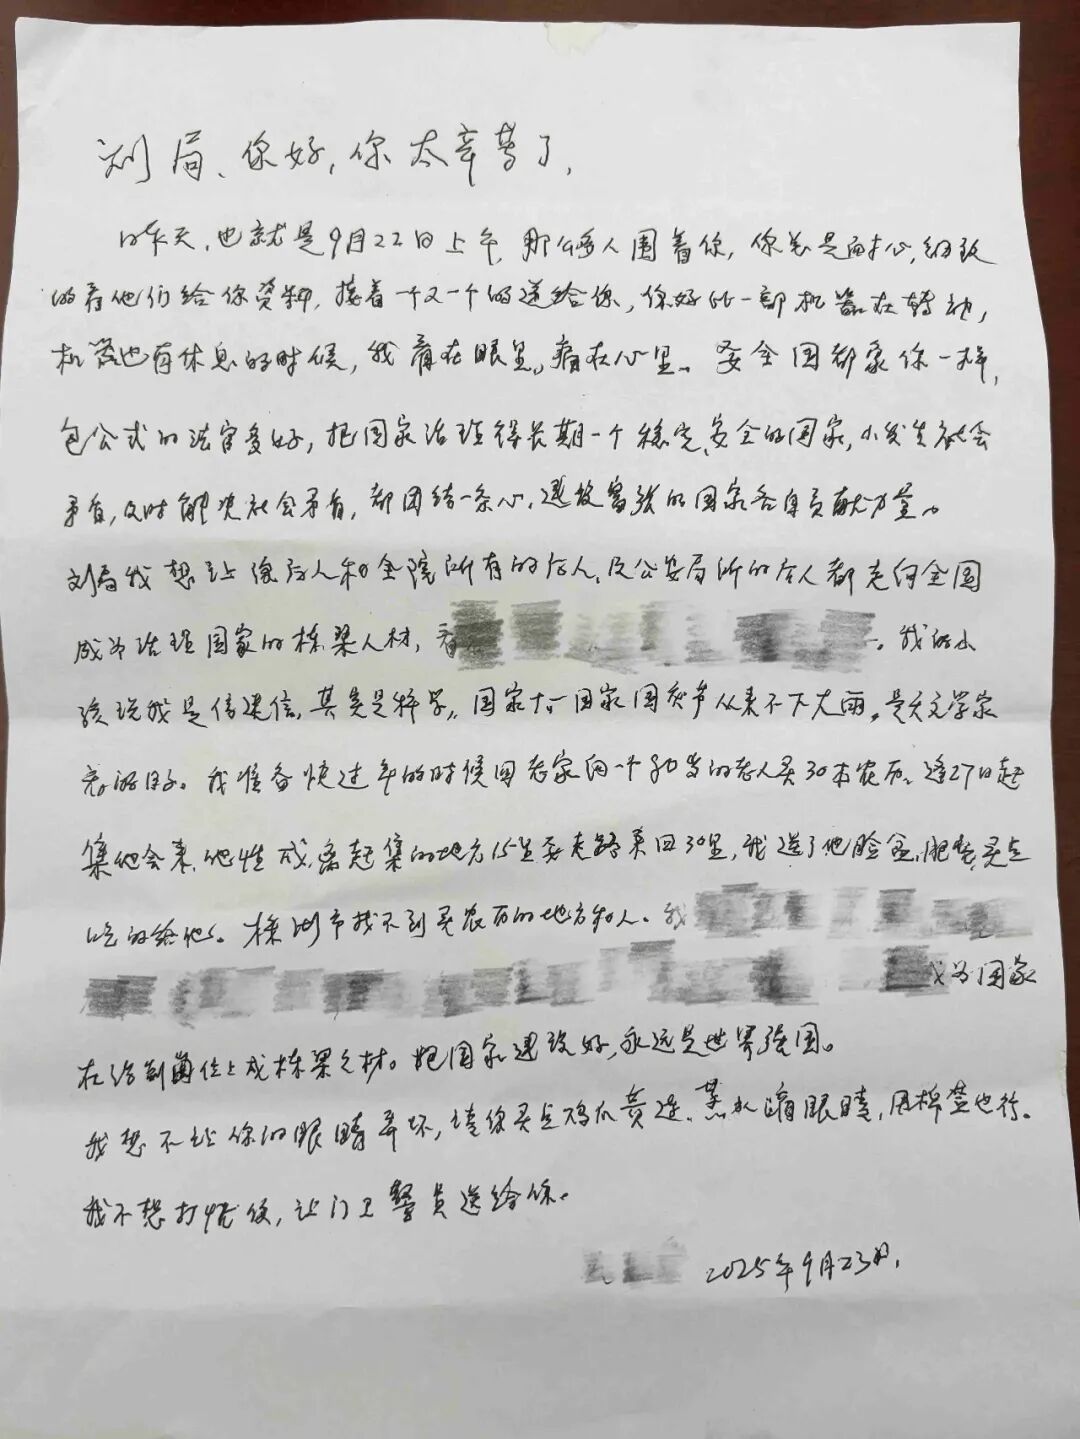 刘局、你好,你太辛苦了,
昨天,也就是9月22日上午,那么多人围着你,你总是耐心,细致
的看他们给你资料,接着一个又一个的送给你,你好比一部机器在转动,
机器也有休息的时候,我看在眼里,痛在心里。要全国都象你一样,
包公式的法官多好,把国家治理得长期一个稳定、安全的国家,小发生社会
矛盾,及时解决社会矛盾,都团结一条心,建设富强的国家各自贡献力量。
刘局我想让你后人和全院所有的后人、及公安局所的后人都走向全国
成为治理国家的栋梁人材,看 。我的小
孩说我是信迷信,其实是科学。国家十一国家国庆节从来不下大雨。是天文学家
 的日子。我准备快过年的时候回老家向一个80岁的老人买30本农历。逢27日赶
集他会来,他性 ,离赶集的地方15里要走路来回30里,我送了他脸盆,肥皂,买点
吃的给他。株洲市找不到买农历的地方和人。我
成为国家
在各 岗位上成栋梁之材。把国家建设好,永远是世界强国。
我想不让你的眼睛弄坏,请你买点鸡爪黄连、蒸水 眼睛,用棉签也行。
我不想打忧你,让门卫警员送给你。
2025年9月23日,